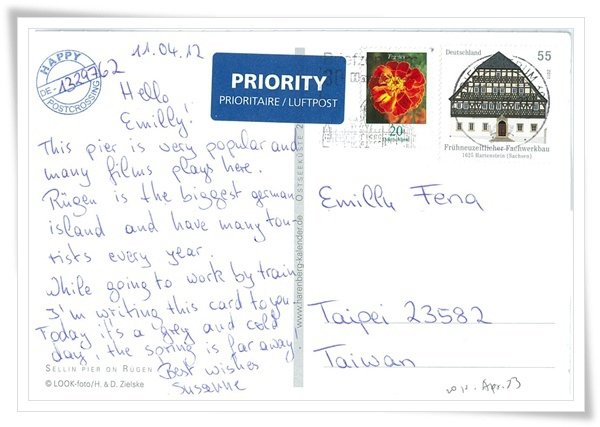 HAPPY
DE-1329762
POSTCROSSING
11.04.12
Hello
Emilly!
This pier is very popular and
many films plays here.
Rügen is the biggest german
island and have many tou-
rists every year.
While going to work by train
I'm writing this card to you.
Today it's a grey and cold
day, the spring is far away.
Best wishes
Susanne
SELLIN PIER ON RÜGEN
© LOOK-foto/H. & D. Zielske
www.harenberg-kalender.de
OSTSEEKÜSTE 2
PRIORITY
PRIORITAIRE / LUFTPOST
20
Deutschland
Deutschland
55
Frühneuzeitlicher Fachwerkbau
1625 Hartenstein (Sachsen)
Emilly Feng
Taipei 23582
Taiwan
Apr. 23